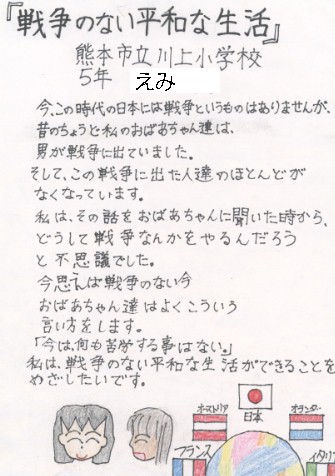 『戦争のない平和な生活』
熊本市立川上小学校
5年 えみ
今、この時代の日本には戦争というものはありませんが、
昔のちょうど私のおばあちゃん達は、
男が戦争に出ていました。
そして、この戦争に出た人達のほとんどが
なくなっています。
私は、その話をおばあちゃんに聞いた時から、
どうして戦争なんかをやるんだろう
と不思議でした。
今思えば戦争のない今
おばあちゃん達はよくこういう
言い方をします。
「今は、何も苦労する事はない。」
私は、戦争のない平和な生活ができることを
めざしたいです。
日本
オーストリア
オランダ
フランス
イタリ